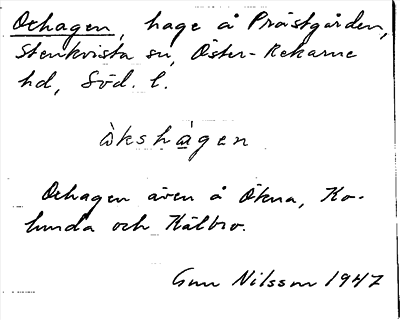 Oxhagen, hage å Prästgården,
Stenkvista sn, Öster-Rekarne
hd, Söd. l.
òkshàgen
Oxhagen även å Ökna, Ko-
lunda och Kälbro.
Gun Nilsson 1947